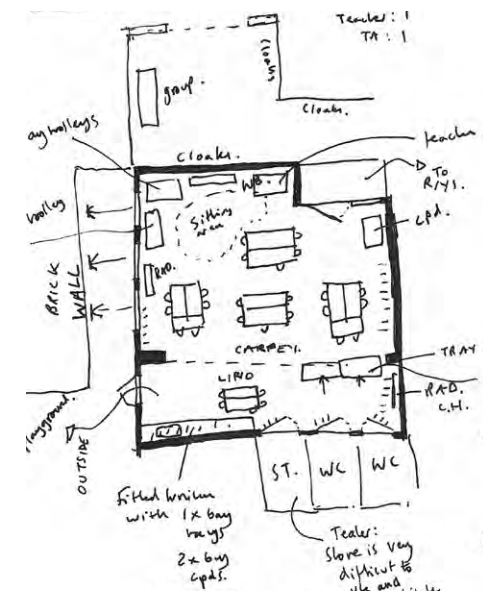 Teacher: 1
TA: 1
Cloaks
group.
Cloaks.
ay trolleys
Cloaks.
teacher
WB.
TO
R/Y1.
trolley
Sitting
area
cpd.
RAD.
BRICK
WALL
CARPET.
TRAY
LINO
RAD.
C.H.
layground.
OUTSIDE
ST.
WC
WC
fitted
with 1x bay
trays
2x bay
cpds.
Teacher:
Store is very
difficult to
and